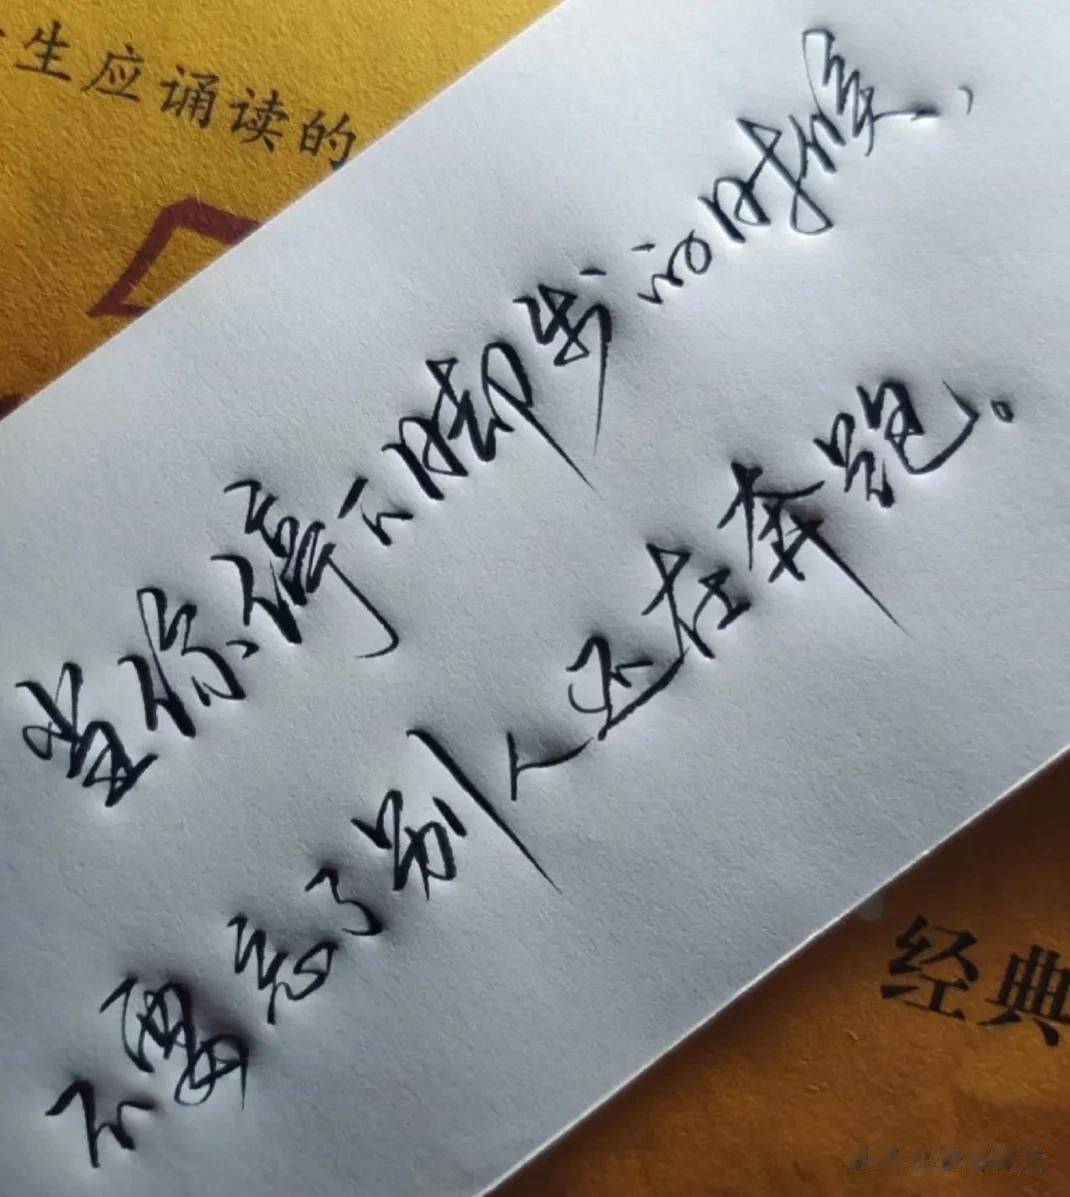 生应诵读的
当你停下脚步的时候，
不要忘了别人还在奔跑。
经典